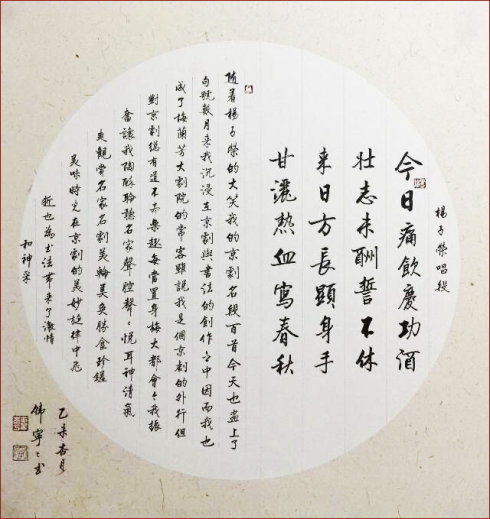 楊子榮唱段
今日痛飲慶功酒
壮志未酬誓不休
来日方長顯身手
甘灑熱血寫春秋
隨着楊子榮的大笑我的京劇名段百首今天也畫上了
句號數月来我沉浸在京劇與書法的創作之中因而我也
成了梅蘭芳大劇院的常客雖説我是個京劇的外行但
對京劇總有道不盡樂趣每當置身梅大都會令我振
奮讓我陶醉聆聽名家聲腔聲聲悦耳神清氣
爽觀賞名家名劇美輪美奐勝食珍饈
美味時光在京劇的美妙旋律中飛
逝也為書法帶来了激情
和神采
乙未杏月